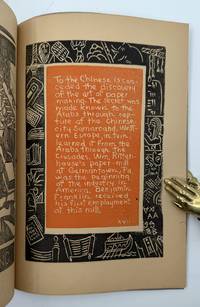 To the Chinese is con-
ceded the discovery
of the art of paper
making. The secret was
made known to the
Arabs through cap-
ture of the Chinese
city Samarcand, West-
ern Europe, in turn,
learned it from the
Arabs through the
Crusades. Wm. Ritten-
house's paper-mill
at Germantown, Pa.
was the beginning
of the industry in
America. Benjamin
Franklin received
his first employment
at this mill.